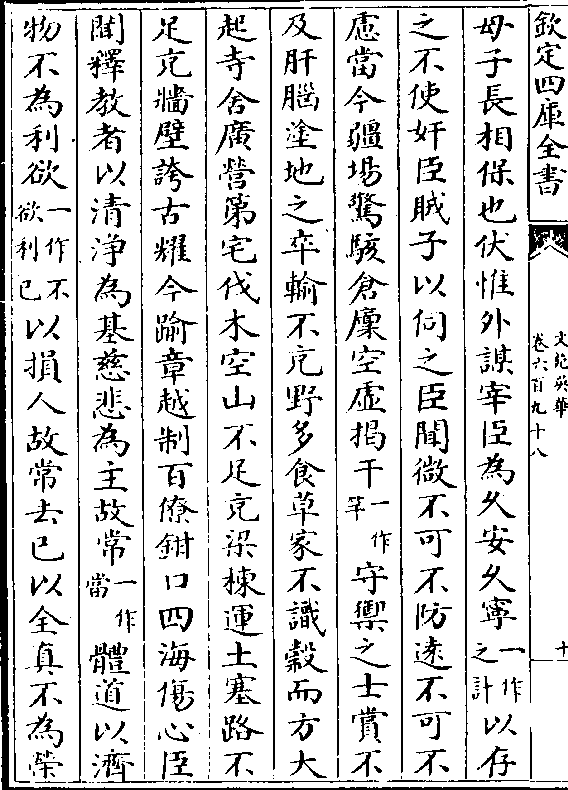 欽定四庫全書
文苑英華
卷六百九十八
十
母子長相保也伏惟外謀宰臣為久安久寧一作之計以存
之不使奸臣賊子以伺之臣聞微不可不防遠不可不
慮當今疆場驚駭倉廩空虛揭干一作竿守禦之士賞不
及肝腦塗地之卒輸不充野多食草家不識穀而方大
起寺舍廣營第宅伐木空山不足充梁棟運土塞路不
足充牆壁誇古耀今踰章越制百僚鉗口四海傷心臣
聞釋教者以清淨為基慈悲為主故常一作當體道以濟
物不為利欲一作不欲利已以損人故常去已以全真不為榮